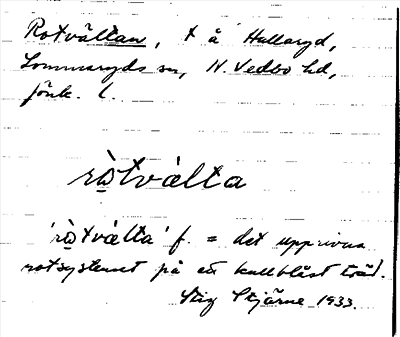 Rotvältan, t å Hullaryd,
Lommaryds sn, N. Vedbo hd,
Jönk. l.
rò̲tvál̀ta
'rò̲tvál̀ta' f. = det upprivna
rotsystemet på ett kullblåst träd.
Stig Stjärne 1933.